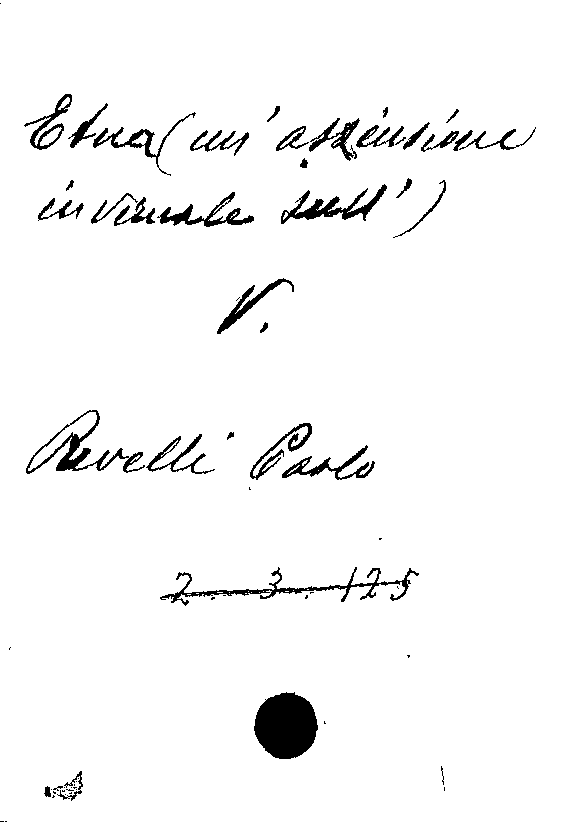 Etna (un' ascensione
invernale sull')
V.
Revelli Paolo
2. 3. 125